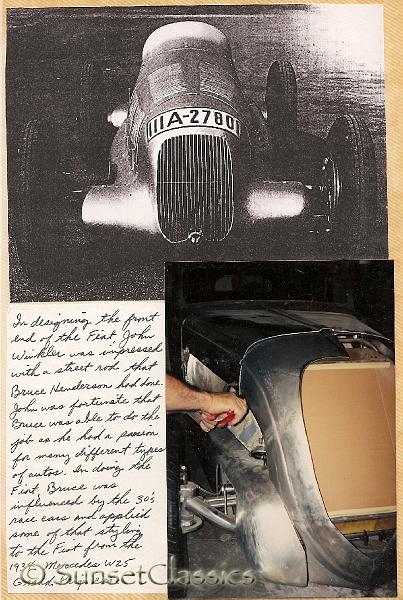 IIIA-2780
In designing the front
end of the Fiat, John
Winkler was impressed
with a street rod that
Bruce Henderson had done.
John was fortunate that
Bruce was able to do the
job as he had a passion
for many different types
of autos. In doing the
Fiat, Bruce was
influenced by the 30's
race cars and applied
some of that styling
to the Fiat from the
1934 Mercedes W25
Grand Prix
©SunsetClassics